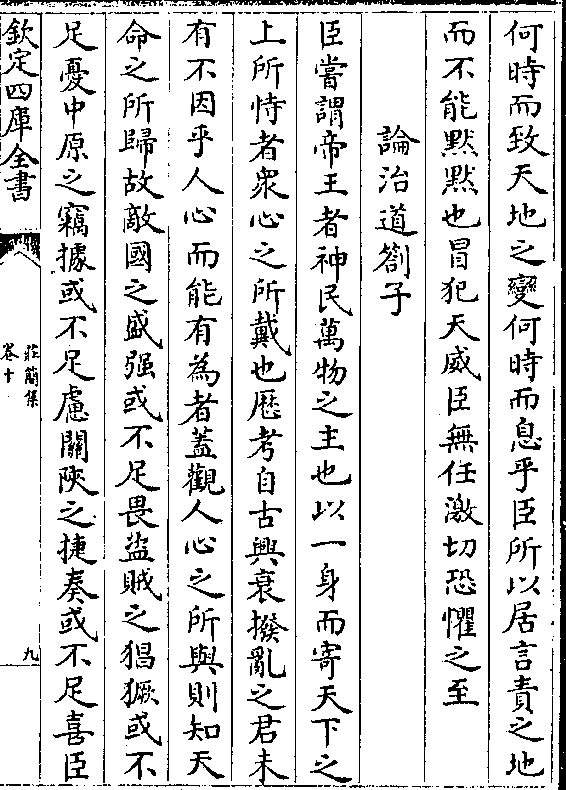 何時而致天地之變何時而息乎臣所以居言責之地
而不能默默也冒犯天威臣無任激切恐懼之至
論治道劄子
臣嘗謂帝王者神民萬物之主也以一身而寄天下之
上所恃者衆心之所戴也歷考自古興衰撥亂之君未
有不因乎人心而能有為者蓋觀人心之所與則知天
命之所歸故敵國之盛强或不足畏盜賊之猖獗或不
足憂中原之竊據或不足慮關陜之捷奏或不足喜臣
欽定四庫全書
莊簡集
卷十
九